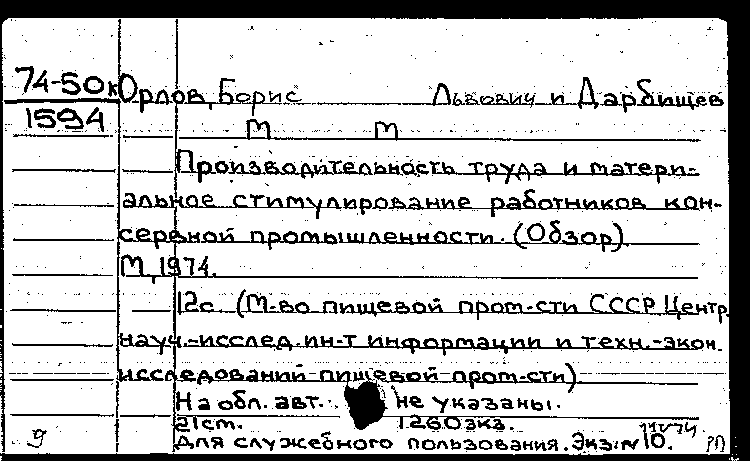 74-50к
1594
Орлов, Борис Львович и Дарбищев
М М
Производительность труда и матери-
альное стимулирование работников кон-
сервной промышленности. (Обзор)
М, 1974.
12с. (М-во пищевой пром-сти СССР Центр
науч.-исслед. ин-т информации и техн.-экон
исследований пищевой пром-сти)
На обл. авт. не указаны.
21см. 1260экз.
Для служебного пользования. Экз. № 10.
9